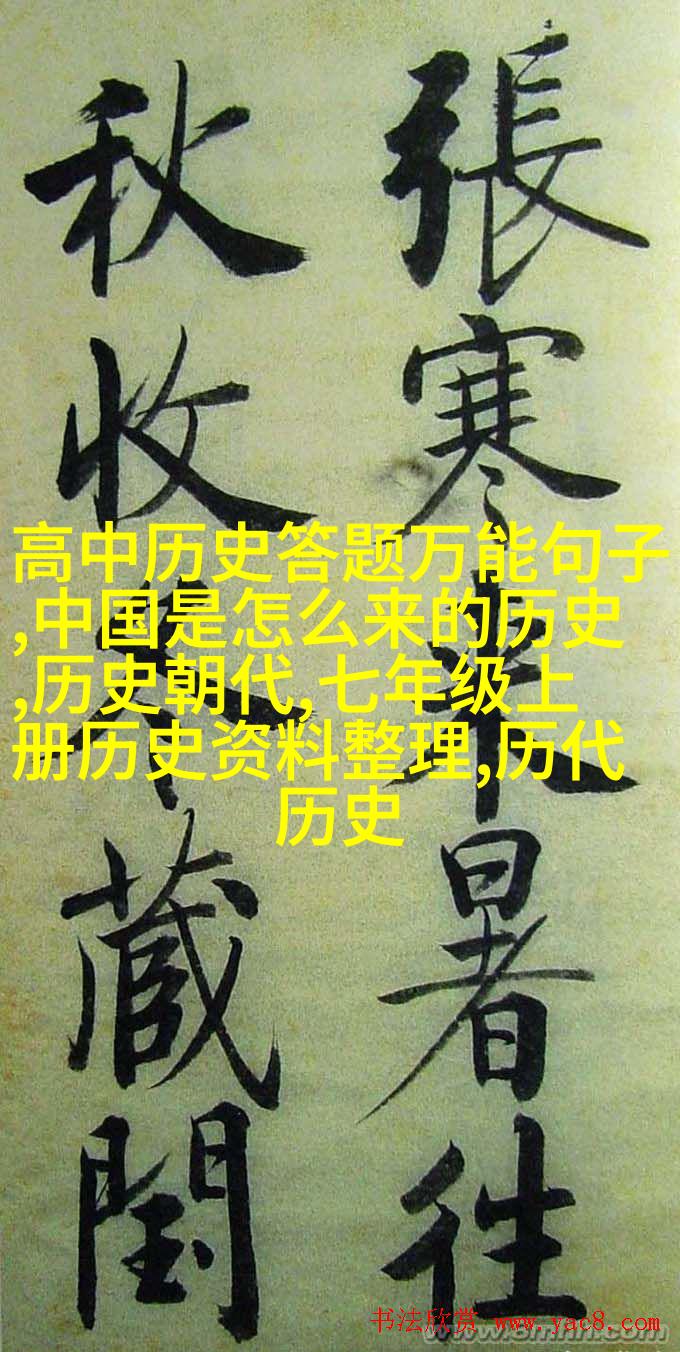 張寒来暑往
秋收冬蔵閏
高中历史答题万能句子
,中国是怎么来的历史
,历史朝代,七年级上
册历史资料整理,历代
历史
书法欣赏 www.yac8.com